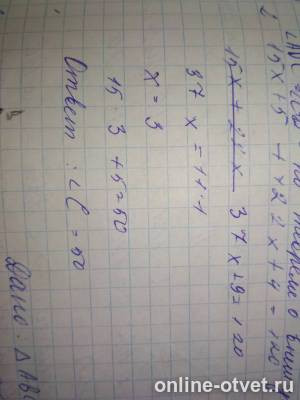 по теореме о внешн
15x+5 + 22x+4 = 120
15x + 22x 37x+9=120
37x = 111
x = 3
15 3 +5=50
Ответ: ∠C = 50
Дано: △АВС
online-otvet.ru